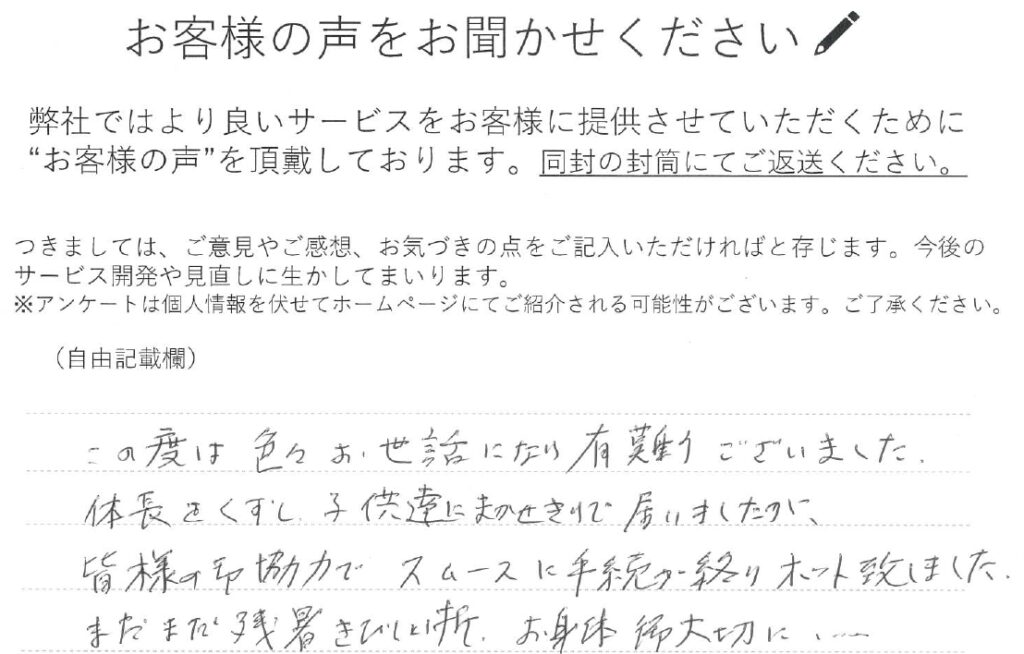 お客様の声をお聞かせください
弊社ではより良いサービスをお客様に提供させていただくために
“お客様の声”を頂戴しております。同封の封筒にてご返送ください。
つきましては、ご意見やご感想、お気づきの点をご記入いただければと存じます。今後の
サービス開発や見直しに生かしてまいります。
※アンケートは個人情報を伏せてホームページにてご紹介される可能性がございます。ご了承ください。
（自由記載欄）
この度は色々お世話になり有難うございました.
体長をくずし子供達にまかせきりで居りましたが、
皆様の御協力でスムースに手続が終りホット致しました.
まだまだ残暑きびしい折、お身体御大切に、……